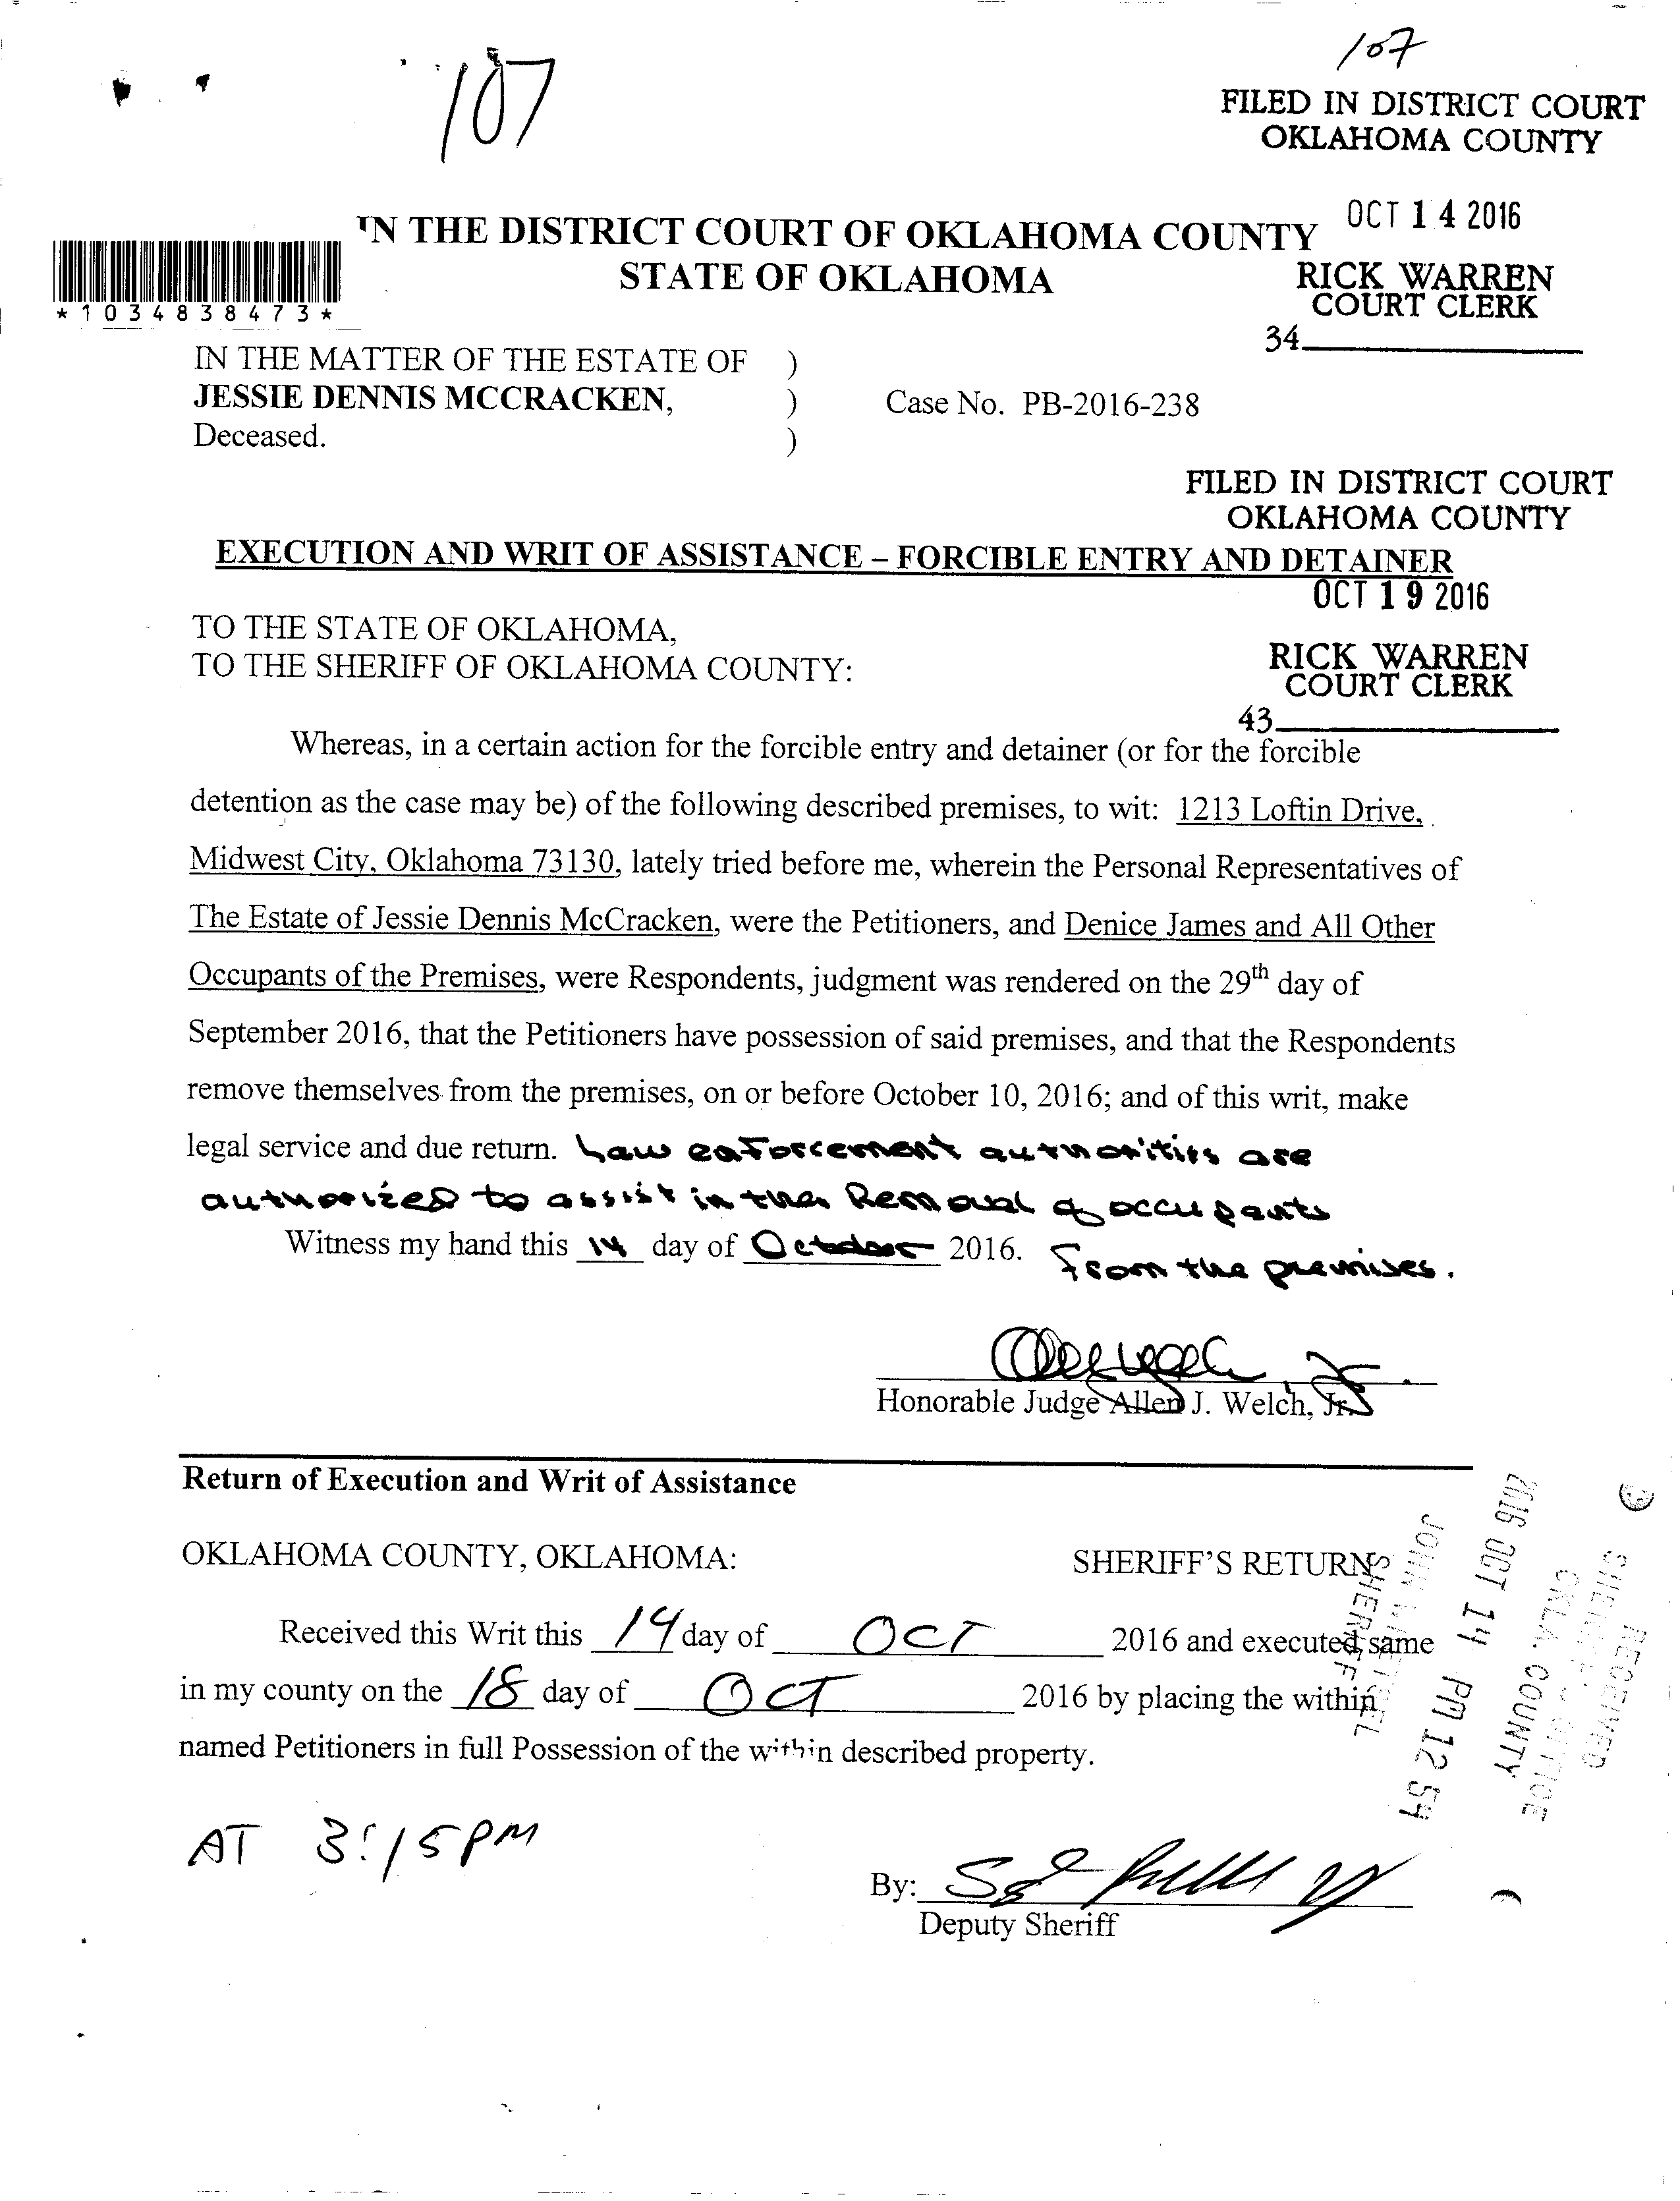 107
107
FILED IN DISTRICT COURT
OKLAHOMA COUNTY
OCT 14 2016
RICK WARREN
COURT CLERK
34
IN THE DISTRICT COURT OF OKLAHOMA COUNTY
STATE OF OKLAHOMA
*1034838473*
IN THE MATTER OF THE ESTATE OF )
JESSIE DENNIS MCCRACKEN, ) Case No. PB-2016-238
Deceased. )
FILED IN DISTRICT COURT
OKLAHOMA COUNTY
EXECUTION AND WRIT OF ASSISTANCE – FORCIBLE ENTRY AND DETAINER
OCT 19 2016
TO THE STATE OF OKLAHOMA,
TO THE SHERIFF OF OKLAHOMA COUNTY:
RICK WARREN
COURT CLERK
43
Whereas, in a certain action for the forcible entry and detainer (or for the forcible
detention as the case may be) of the following described premises, to wit: 1213 Loftin Drive,
Midwest City, Oklahoma 73130, lately tried before me, wherein the Personal Representatives of
The Estate of Jessie Dennis McCracken, were the Petitioners, and Denice James and All Other
Occupants of the Premises, were Respondents, judgment was rendered on the 29th day of
September 2016, that the Petitioners have possession of said premises, and that the Respondents
remove themselves from the premises, on or before October 10, 2016; and of this writ, make
legal service and due return. Law enforcement authorities are
authorized to assist in the Removal of occupants
from the premises.
Witness my hand this 14 day of October 2016.
Honorable Judge Allen J. Welch, Jr.
Return of Execution and Writ of Assistance
OKLAHOMA COUNTY, OKLAHOMA: SHERIFF'S RETURN
Received this Writ this 14 day of OCT 2016 and executed same
in my county on the 18 day of OCT 2016 by placing the within
named Petitioners in full Possession of the within described property.
AT 3:15PM
By:
Deputy Sheriff
RECEIVED
SHERIFF'S OFFICE
OKLA. COUNTY
2016 OCT 14 PM 12 54
SHERIFF